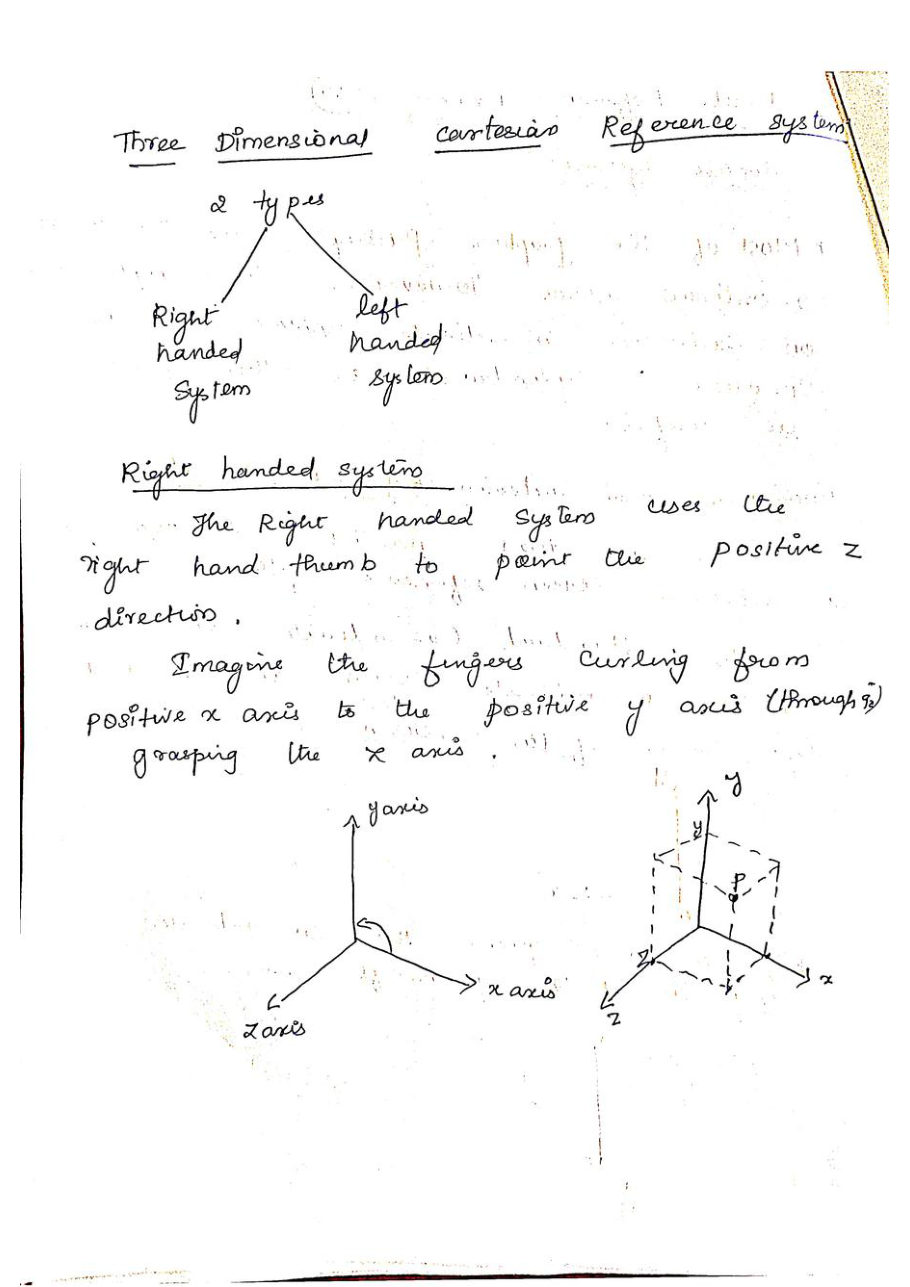 Three Dimensional Cartesian Reference System
2 types
Right
handed
System
left
handed
system
Right handed system
The Right handed System uses the
right hand thumb to point the positive z
direction.
Imagine the fingers curling from
positive x axis to the positive y axis (through
grasping the x axis.
y axis
x axis
Z axis
y
y
P
Z
x
Z